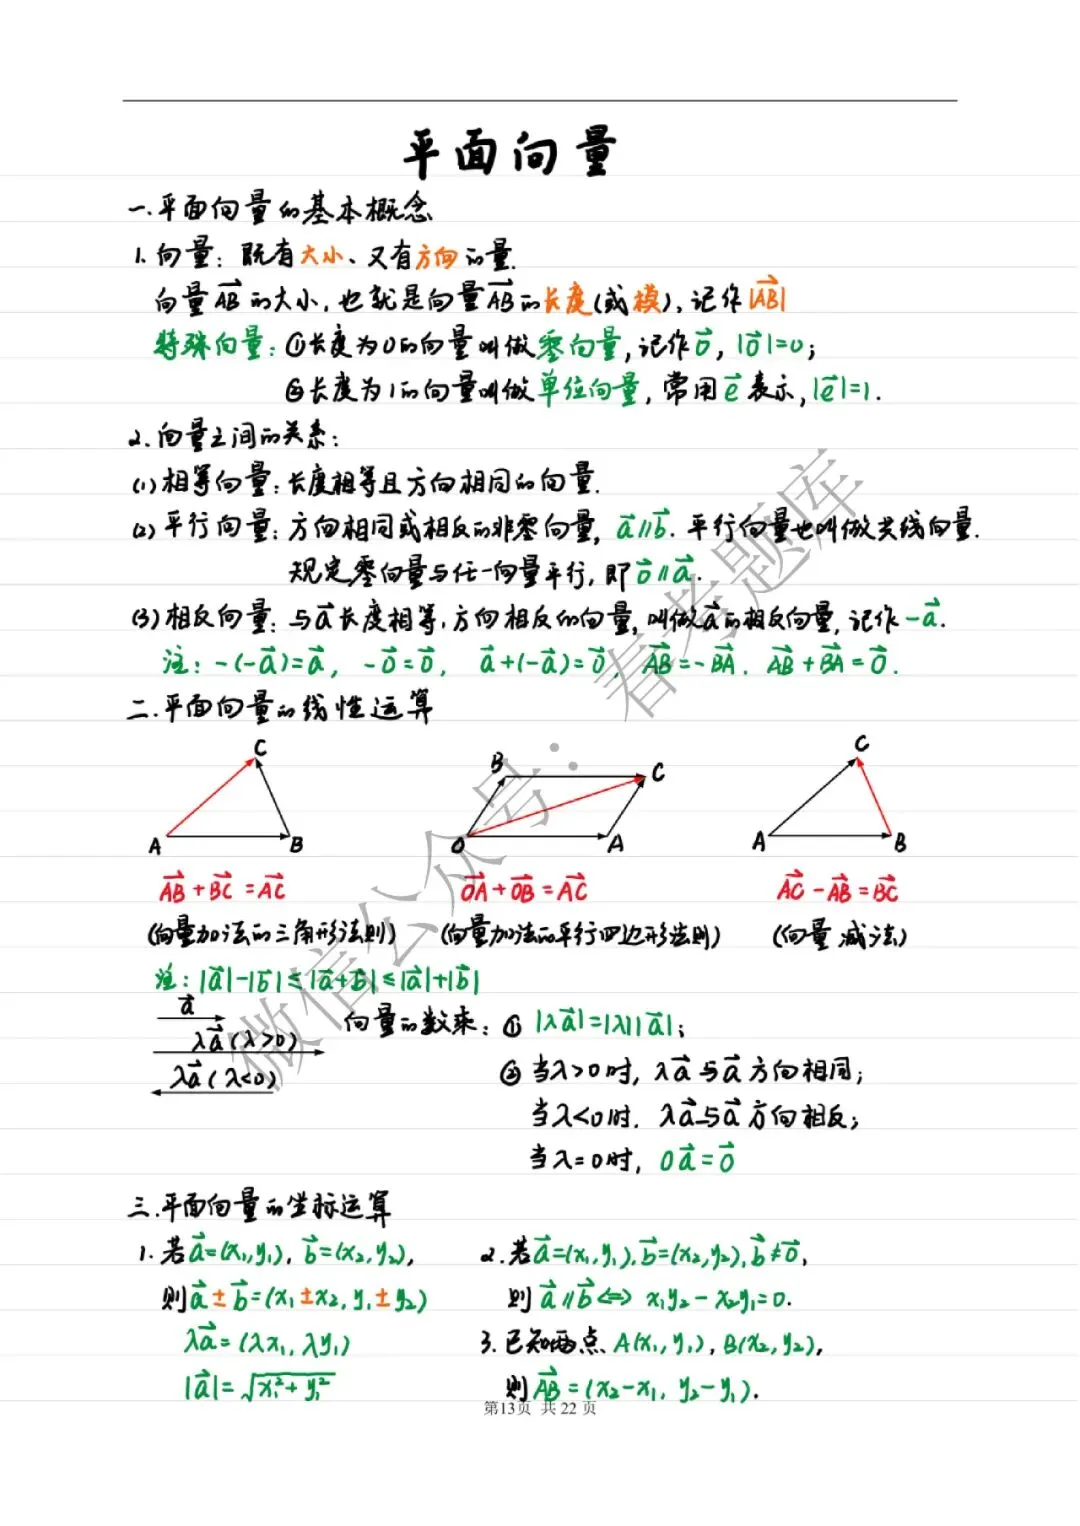 平面向量
一.平面向量的基本概念
1.向量：既有大小、又有方向的量.
向量AB⃗的大小,也就是向量AB⃗的长度(或模),记作|AB⃗|
特殊向量:①长度为0的向量叫做零向量,记作0⃗, |0⃗|=0;
②长度为1的向量叫做单位向量,常用e⃗表示,|e⃗|=1.
2.向量之间的关系:
(1)相等向量:长度相等且方向相同的向量.
(2)平行向量:方向相同或相反的非零向量, a⃗∥b⃗. 平行向量也叫做共线向量.
规定,零向量与任一向量平行,即0⃗∥a⃗.
(3)相反向量:与a⃗长度相等,方向相反的向量,叫做a⃗的相反向量,记作-a⃗.
注: -(-a⃗)=a⃗, -0⃗=0⃗, a⃗+(-a⃗)=0⃗, AB⃗=-BA⃗. AB⃗+BA⃗=0⃗.
二.平面向量的线性运算
A B C
O A B C
A B C
AB⃗+BC⃗=AC⃗
OA⃗+OB⃗=AC⃗
AC⃗-AB⃗=BC⃗
(向量加法的三角形法则)
(向量加法的平行四边形法则)
(向量减法)
注: |a⃗|-|b⃗|≤|a⃗+b⃗|≤|a⃗|+|b⃗|
a⃗
λa⃗(λ>0)
λa⃗(λ<0)
向量的数乘: ① |λa⃗|=|λ||a⃗|;
② 当λ>0时, λa⃗与a⃗方向相同;
当λ<0时. λa⃗与a⃗方向相反;
当λ=0时, 0a⃗=0⃗
三.平面向量的坐标运算
1.若a⃗=(x₁,y₁), b⃗=(x₂,y₂),
则a⃗±b⃗=(x₁±x₂,y₁±y₂)
λa⃗=(λx₁,λy₁)
|a⃗|=√(x₁²+y₁²)
2.若a⃗=(x₁,y₁),b⃗=(x₂,y₂),b⃗≠0⃗,
则a⃗∥b⃗⇔x₁y₂-x₂y₁=0.
3.已知两点A(x₁,y₁),B(x₂,y₂),
则AB⃗=(x₂-x₁,y₂-y₁).
第13页 共22页
微信公众号：春考题库